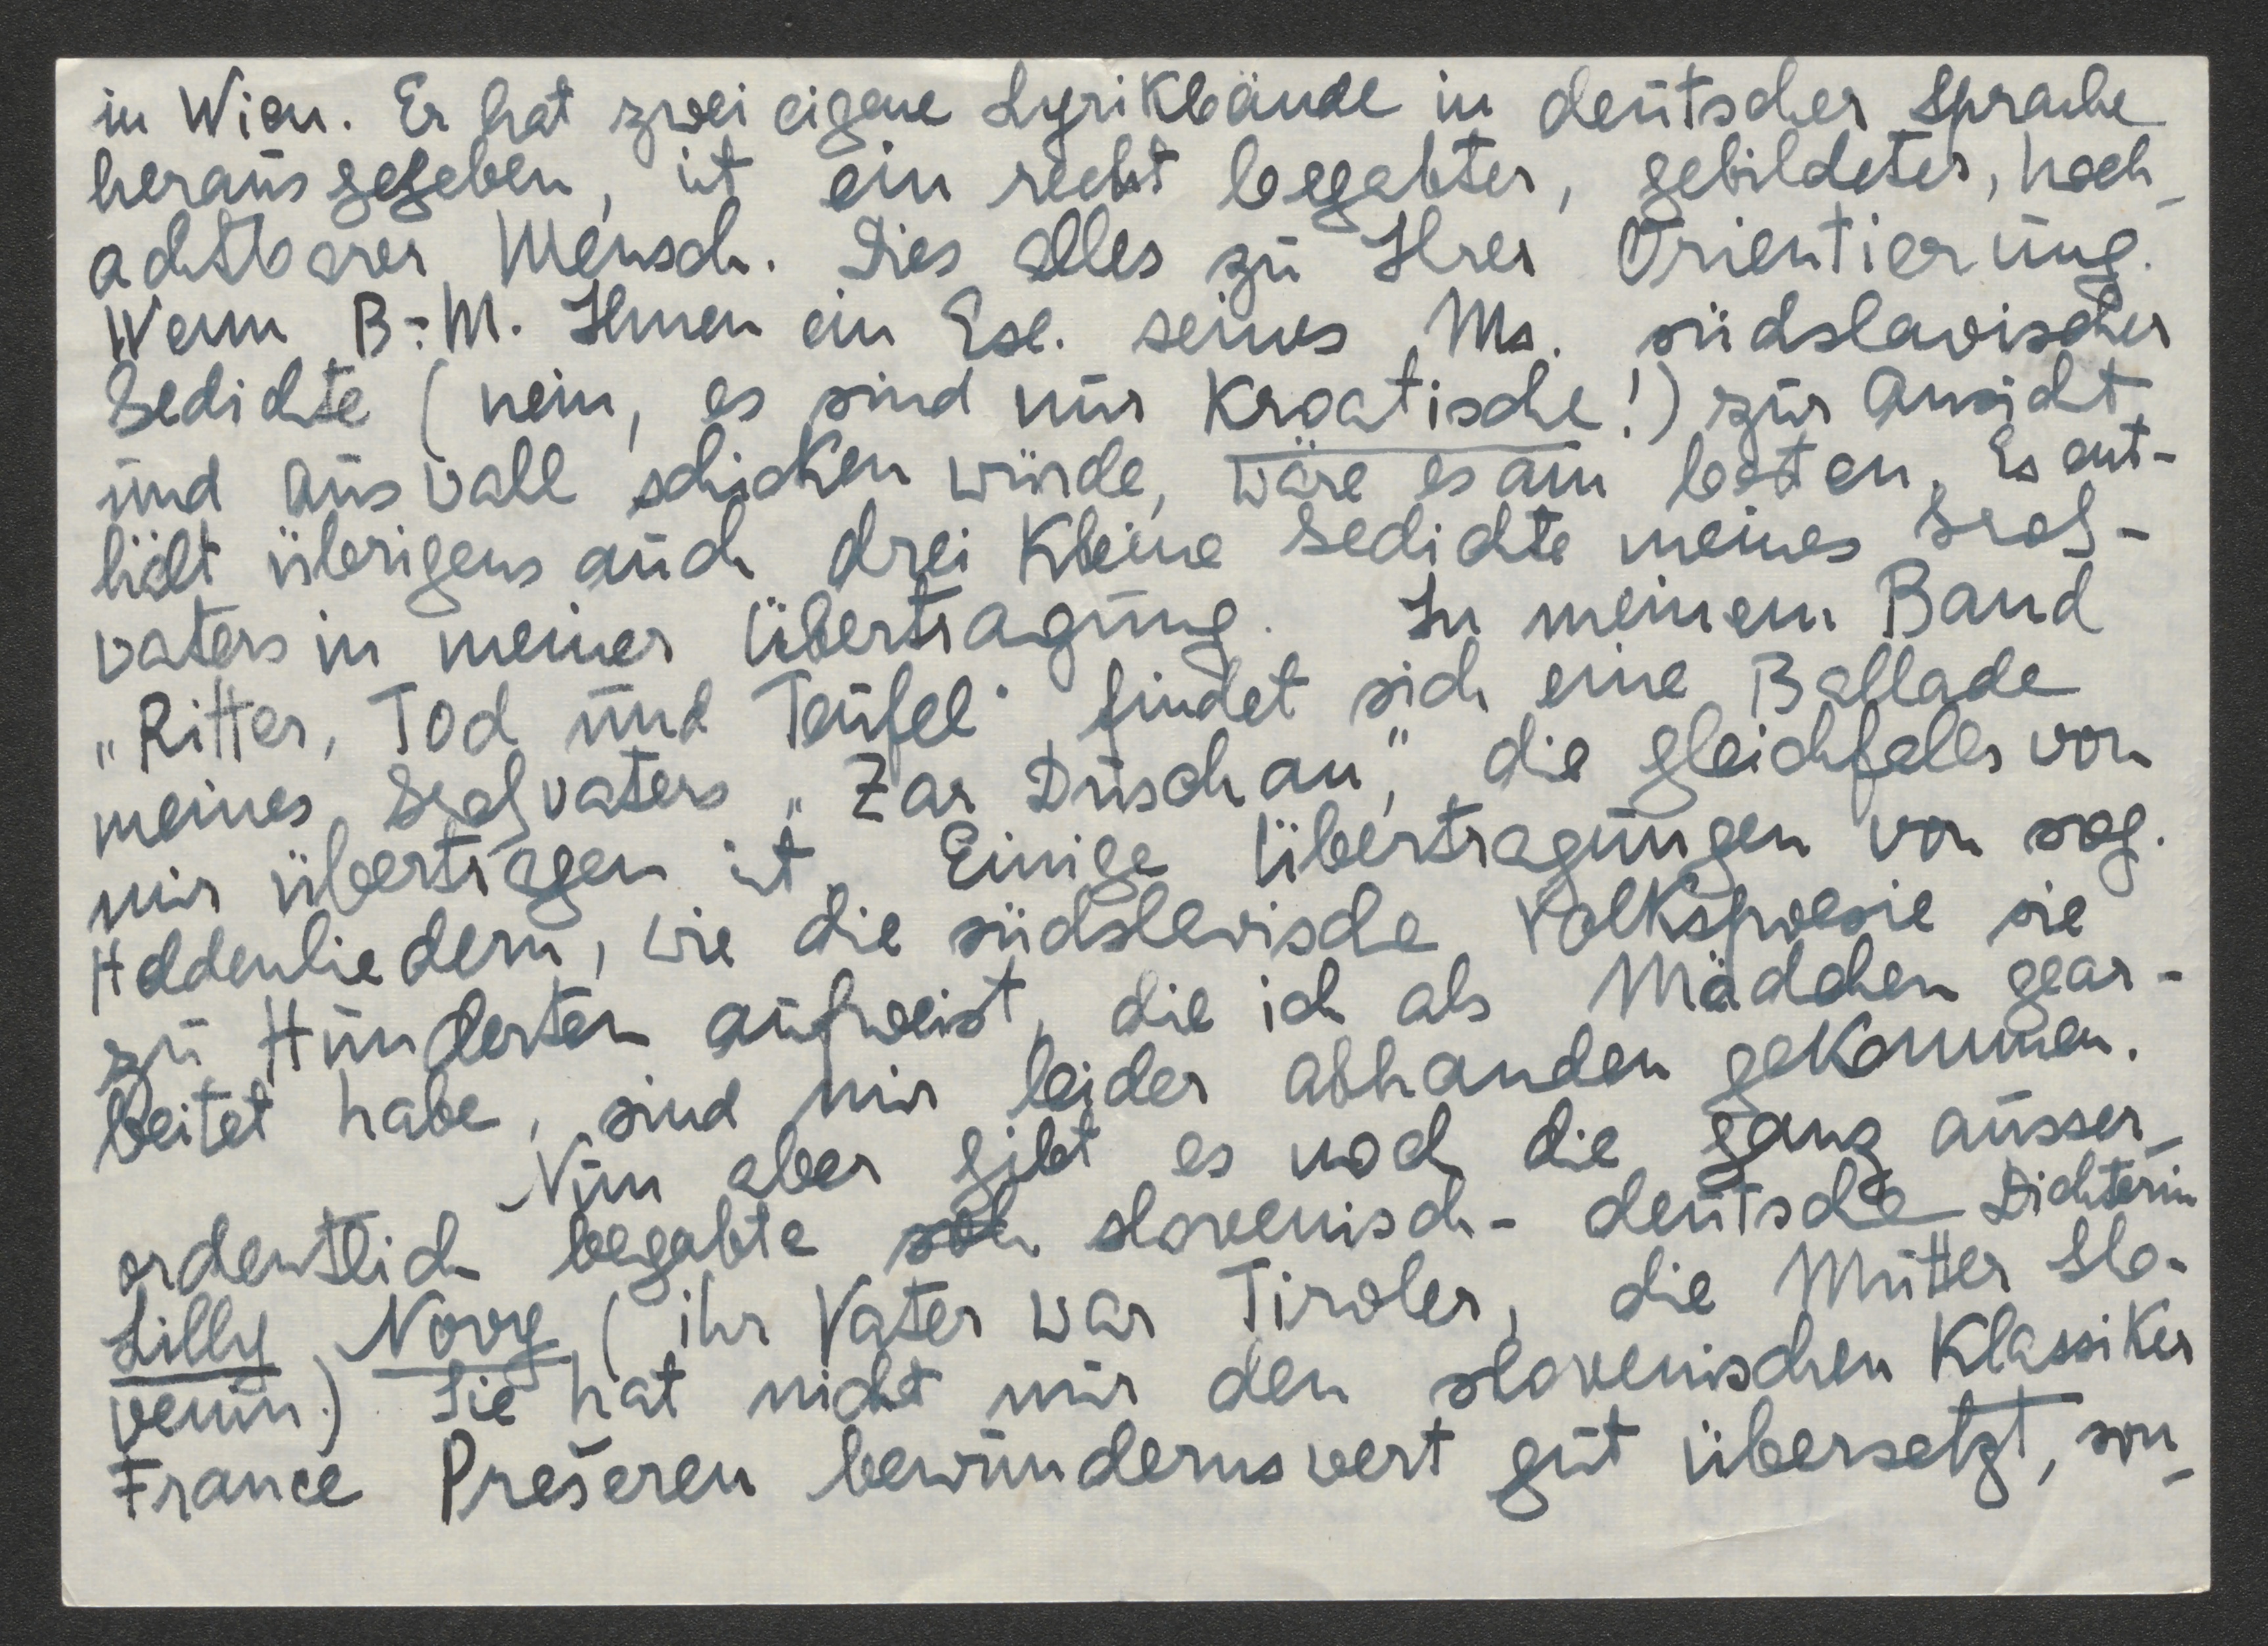 in Wien. Er hat zwei eigene Lyrikbände in deutscher Sprache
herausgegeben, ist ein recht begabter, gebildeter, hoch-
achtbarer Mensch. Dies alles zu Ihrer Orientierung.
Wenn B.-M. Ihnen ein Exl. seines Ms. südslavischer
Gedichte (nein, es sind nur kroatische!) zur Ansicht
und Auswall schicken würde, wäre es am besten. Es ent-
hält übrigens auch drei kleine Gedichte meines Groß-
vaters in meiner Übertragung. In meinem Band
„Ritter, Tod und Teufel" findet sich eine Ballade
meines Großvaters „Zar Duschan", die gleichfalls von
mir übertragen ist. Einige Übertragungen von sog.
Heldenliedern, wie die südslavische Volkspoesie sie
zu Hunderten aufweist, die ich als Mädchen gear-
beitet habe, sind mir leider abhanden gekommen.
Nun aber gibt es noch die ganz ausser-
ordentlich begabte slovenisch-deutsche Dichterin
Lilly Novy (ihr Vater war Tiroler, die Mutter Slo-
venin.) Sie hat nicht nur den slovenischen Klassiker
France Prešeren bewundernswert gut übersetzt, son-